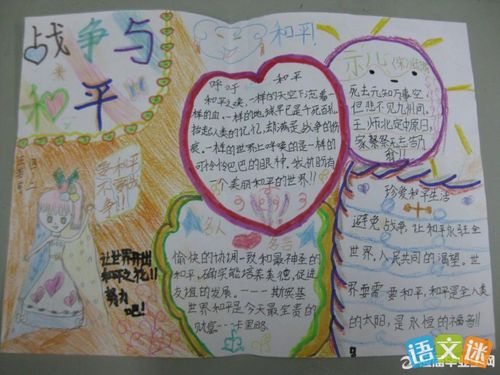 战争与
和平
和平!
呼吁 和平
和平之美,一样的天空下流着一
样的血,一样的地
拾起人类的记忆,却满是战争的伤
痕。一样的世界上
可怜巴巴的眼神,
个美丽和平的世界!!
示儿
死去元知万事空
但悲不见九州同。
王师北定中原日,
家祭
要和平
不要战
争!!!
让世界开出
和平之花!!
努力
吧!
名人 名言
愉快的协调一致和最神圣的
和平,确实能培养美德,促进
友谊的发展。---斯宾基
世界和平是今天最宝贵的
财富--
珍爱和平生活
避免战争,让和平永驻全
世界,人民共同的渴望。世
界需要和平,和平是全人类
的太阳,是永恒的福音!!
语文迷